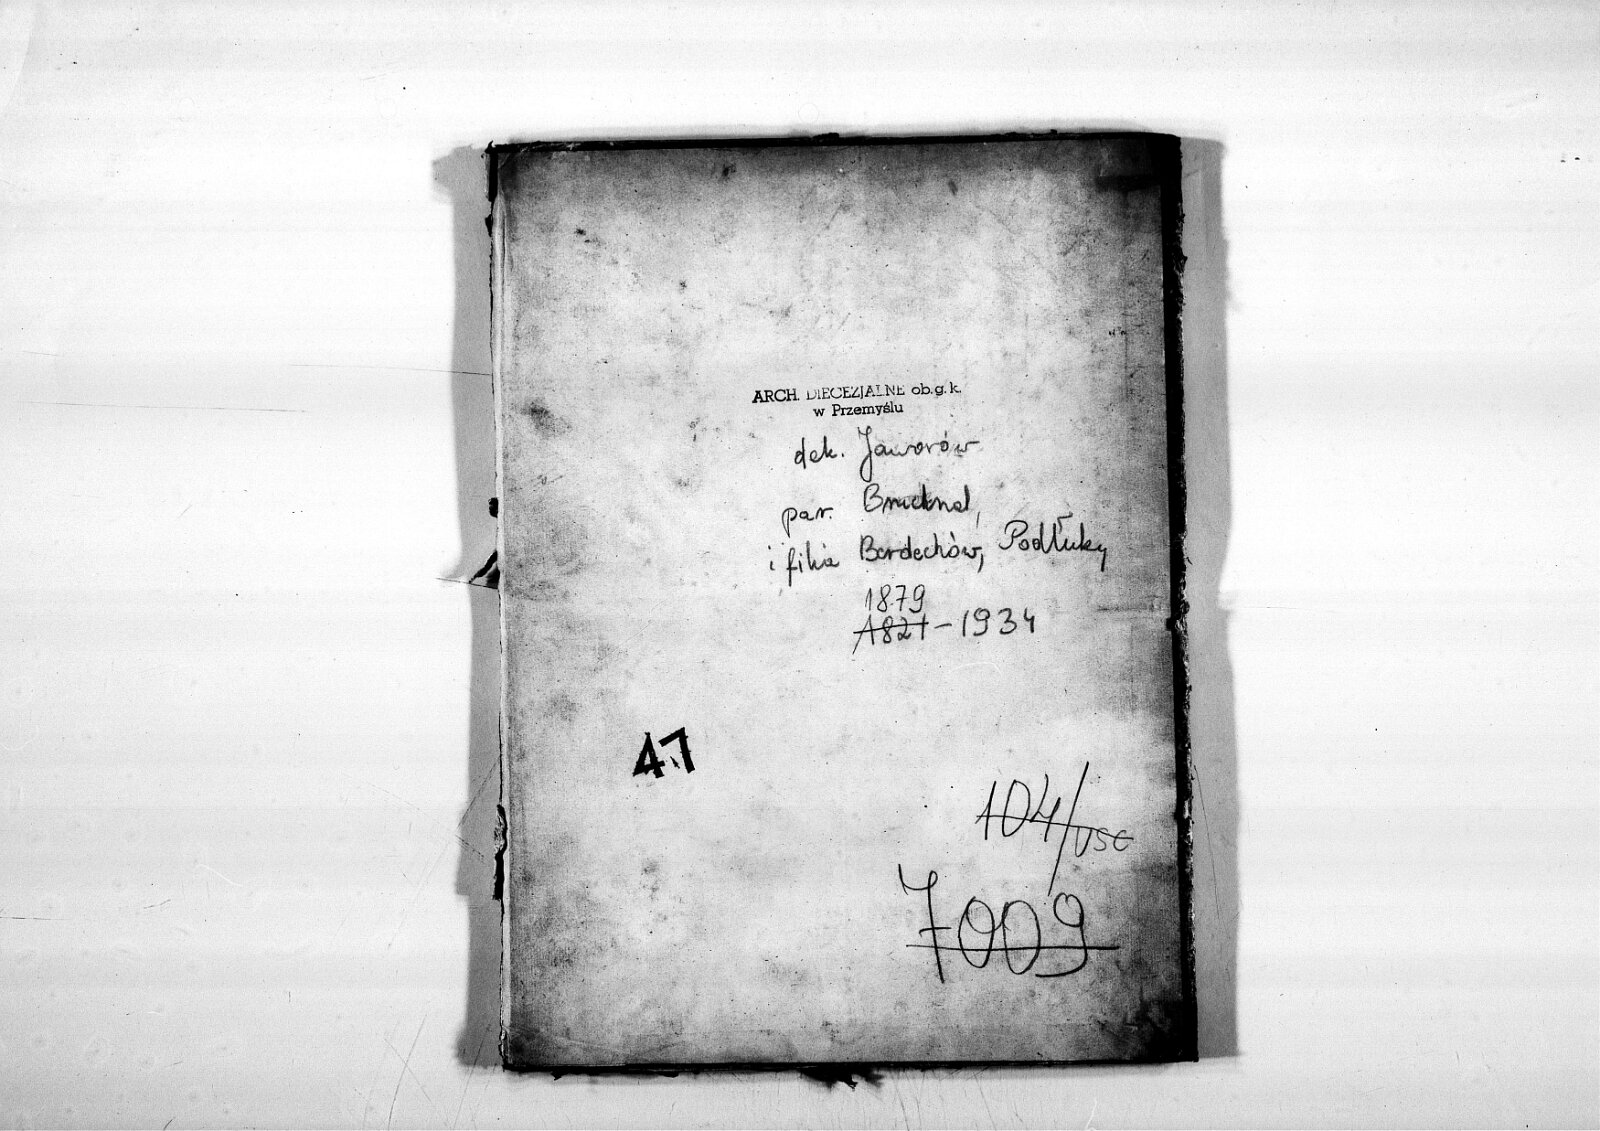 ARCH. DIECEZJALNE ob.g.k.
w Przemyślu
dek. Jaworów
par. Brucknal,
i filia Berdechów, Podłuky
1879
1821 - 1934
47
104/USC
7009